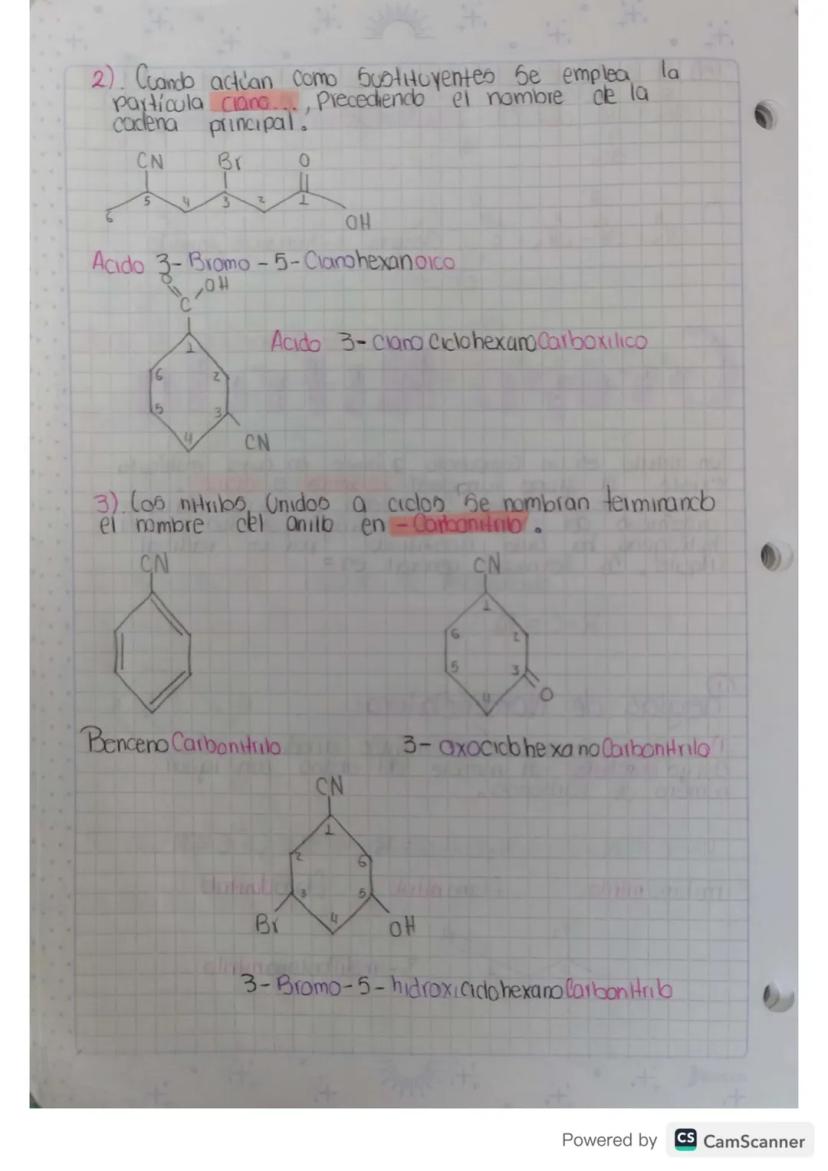 2). Cuando actúan como Sustituyentes Se emplea la
partícula ciano..., Precediendo el nombre de la
cadena principal.
CN Br O
6 5 4 3 2 1
OH
Acido 3-Bromo-5-Cianohexanoico
O OH
C
1
Acido 3-ciano CiclohexanoCarboxilico
6 2
5 3
4 CN
3) Los nitrilos, Unidos a ciclos Se nombran terminando
el nombre del anillo en -Carbonitrilo.
CN CN
1
6 2
5 3
4 O
BencenoCarbonitrilo 3-oxociclohexanoCarbonitrilo
CN
1
2 6
3 5
Br 4 OH
3-Bromo-5-hidroxiciclohexanoCarbonitrilo
Powered by CS CamScanner